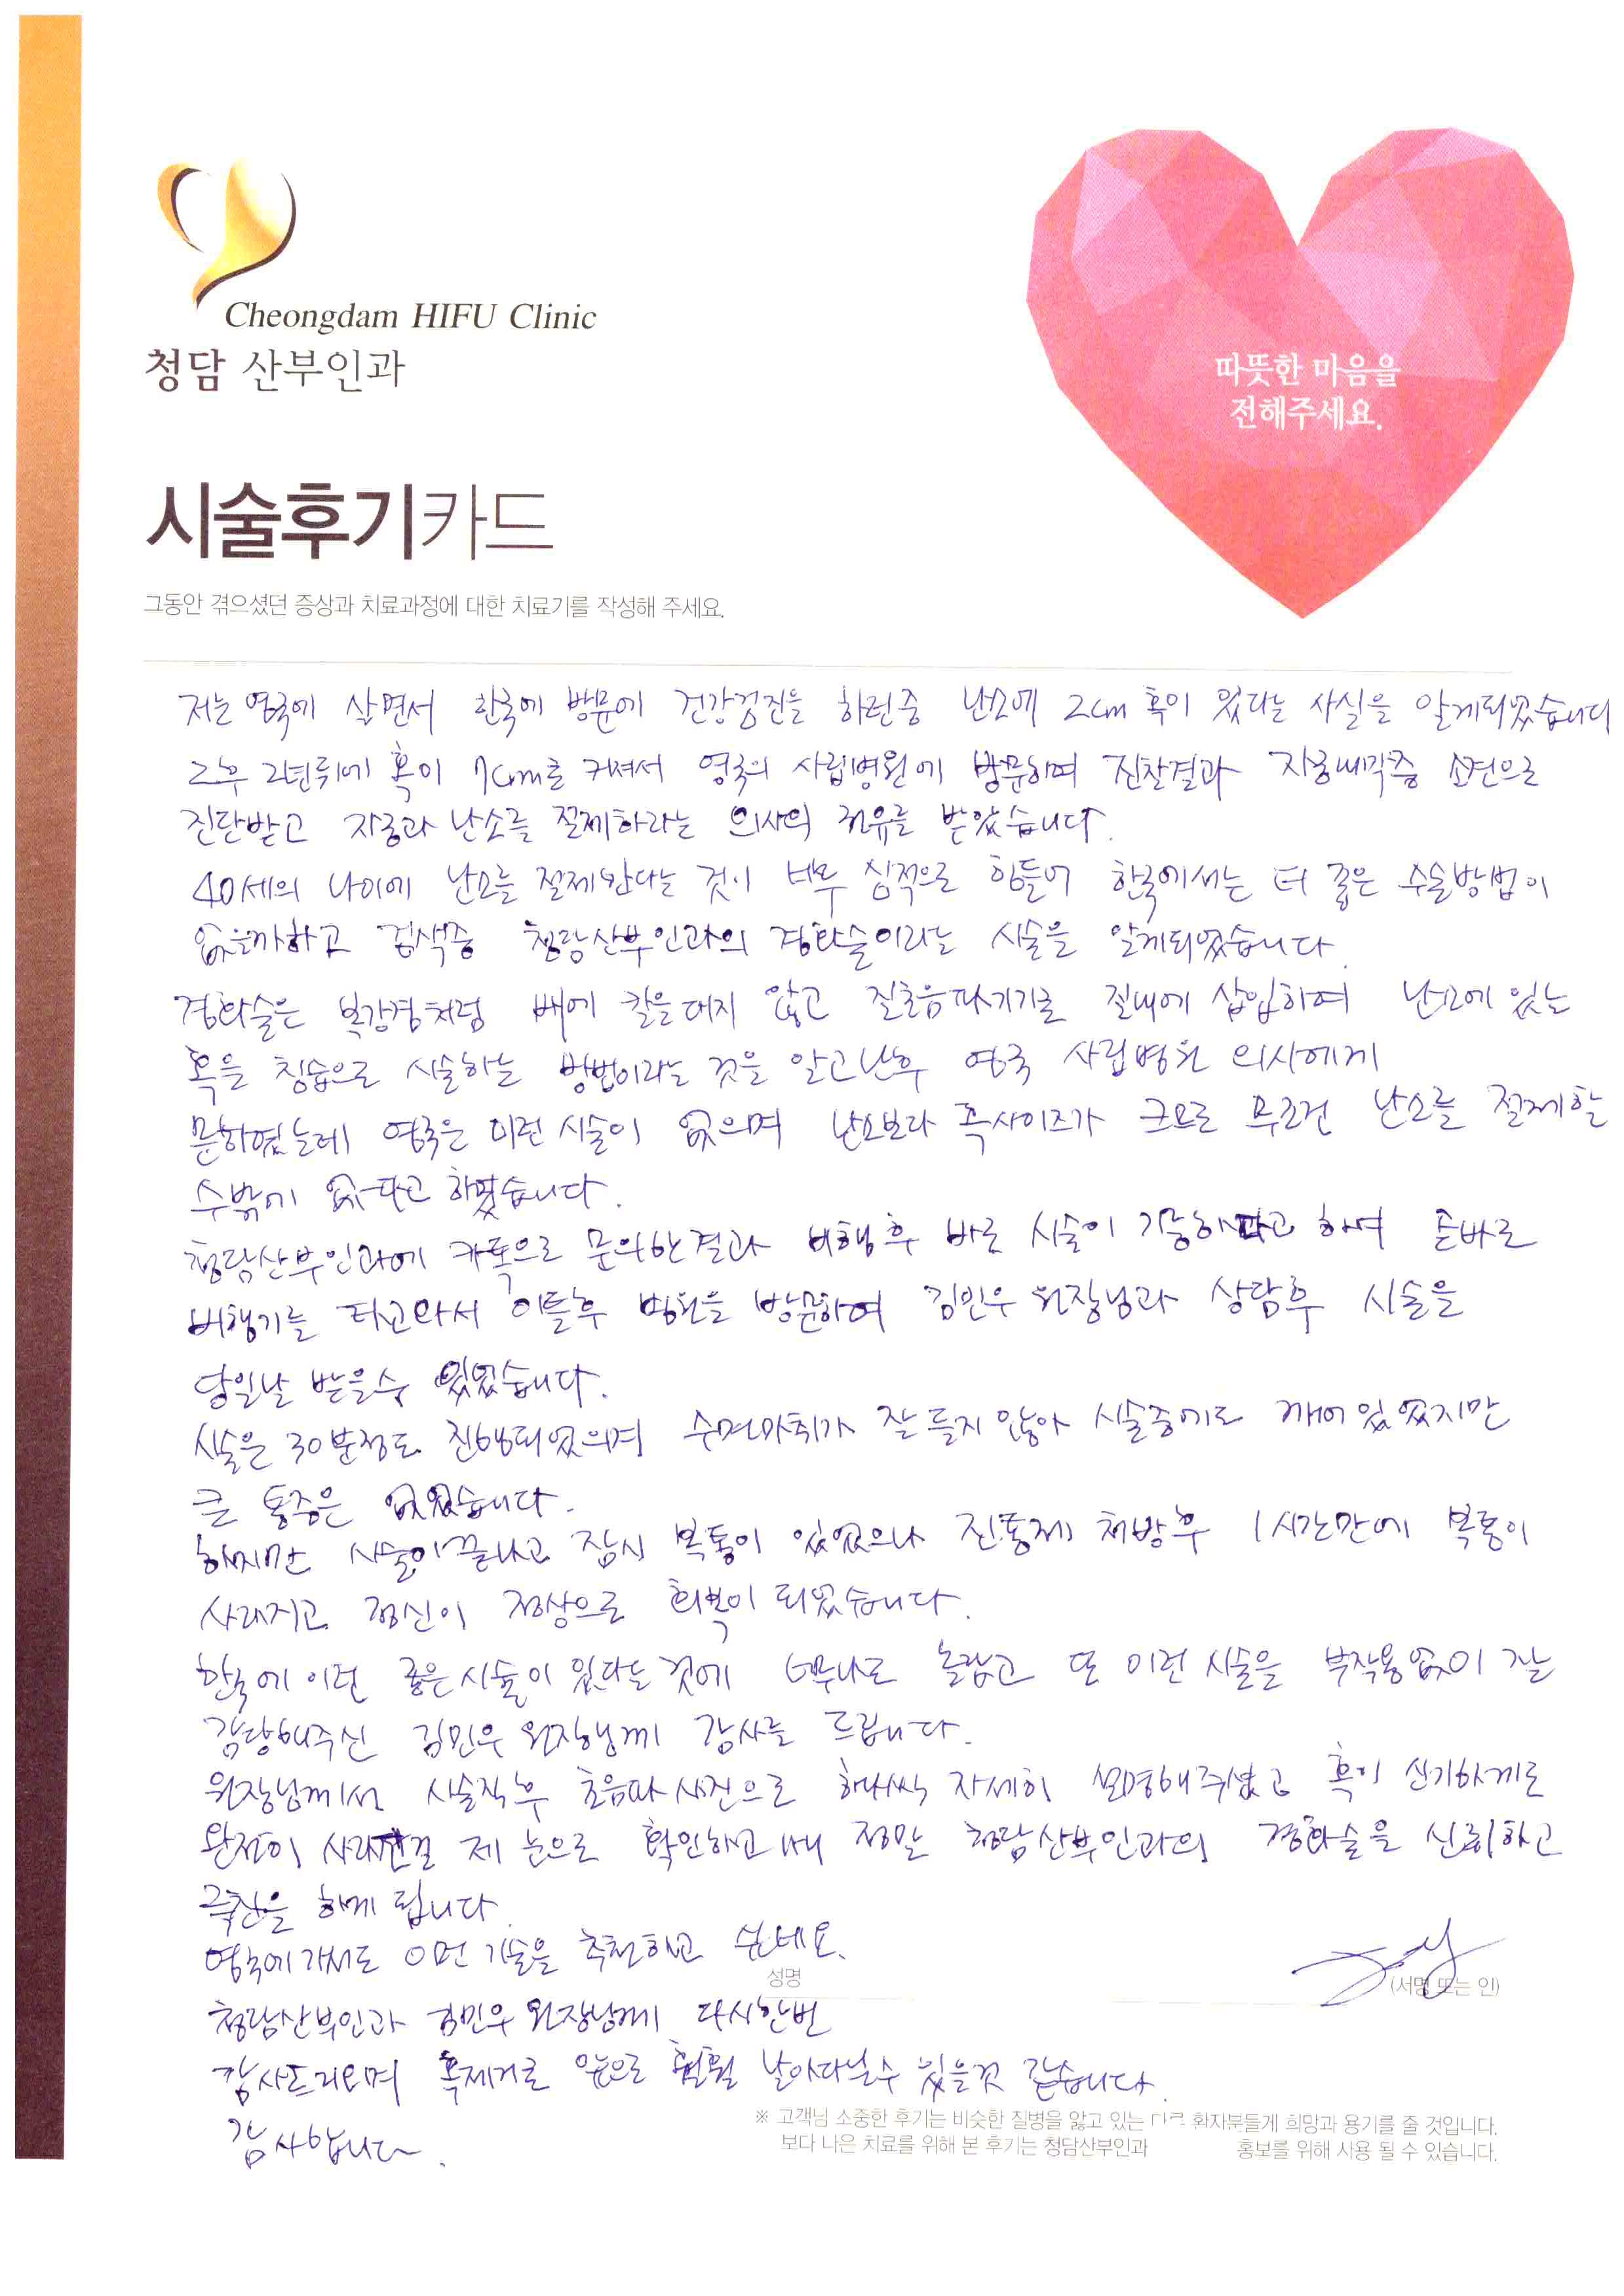 Cheongdam HIFU Clinic
청담 산부인과
따뜻한 마음을
전해주세요.
시술후기카드
그동안 겪으셨던 증상과 치료과정에 대한 치료기를 작성해 주세요.
저는 영국에 살면서 한국에 방문에 건강검진을 하던중 난소에 2cm 혹이 있다는 사실을 알게되었습니다
그후 2년뒤에 혹이 7cm로 커져서 영국의 사립병원에 방문하여 진찰결과 자궁내막증 소견으로
진단받고 자궁과 난소를 절제하라는 의사의 권유를 받았습니다.
40세의 나이에 난소를 절제한다는 것이 너무 심적으로 힘들어 한국에서는 더 좋은 수술방법이
없을까하고 검색중 청담산부인과의 경화술이라는 시술을 알게되었습니다.
경화술은 복강경처럼 배에 칼을 대지 않고 질초음파기기로 질내에 삽입하여 난소에 있는
혹을 침습으로 시술하는 방법이라는 것을 알고난후 영국 사립병원 의사에게
문의하였는데 영국은 이런 시술이 없으며 난소보다 혹사이즈가 크므로 무조건 난소를 절제할
수밖에 없다고 하였습니다.
청담산부인과에 카톡으로 문의한결과 비행후 바로 시술이 가능하다고 하여 곧바로
비행기를 타고와서 이틀후 병원을 방문하여 김민우 원장님과 상담후 시술을
당일날 받을수 있었습니다.
시술은 30분정도 진행되었으며 수면마취가 잘 듣지 않아 시술중에도 깨어있었지만
큰 통증은 없었습니다.
하지만 시술이끝나고 잠시 복통이 있었으나 진통제 처방후 1시간만에 복통이
사라지고 정신이 정상으로 회복이 되었습니다.
한국에 이런 좋은 시술이 있다는 것에 너무나도 놀랍고 또 이런 시술을 부작용없이 잘
감당해주신 김민우 원장님께 감사를 드립니다.
원장님께서 시술직후 초음파 사진으로 하나씩 자세히 설명해주셨고 혹이 신기하게도
완전이 사라진걸 제 눈으로 확인하고나니 정말 청담산부인과의 경화술을 신뢰하고
극찬을 하게 됩니다.
영국에가서도 이런 기술을 추천하고 싶네요.
성명
(서명 또는 인)
청담산부인과 김민우 원장님께 다시한번
감사드리오며 혹제거로 앞으로 훨훨 날아다닐수 있을것 같습니다.
감사합니다.
※ 고객님 소중한 후기는 비슷한 질병을 앓고 있는 다른 환자분들게 희망과 용기를 줄 것입니다.
보다 나은 치료를 위해 본 후기는 청담산부인과 홍보를 위해 사용 될 수 있습니다.